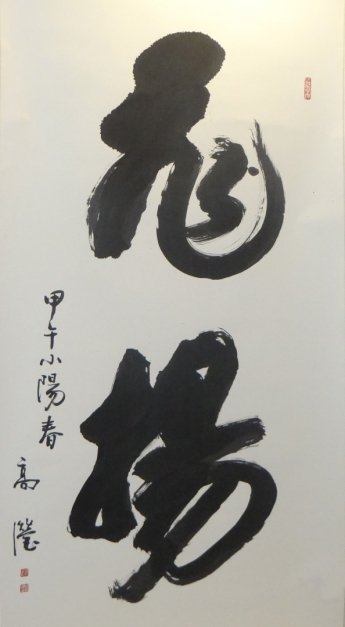 飛揚
甲午小陽春 高瀅